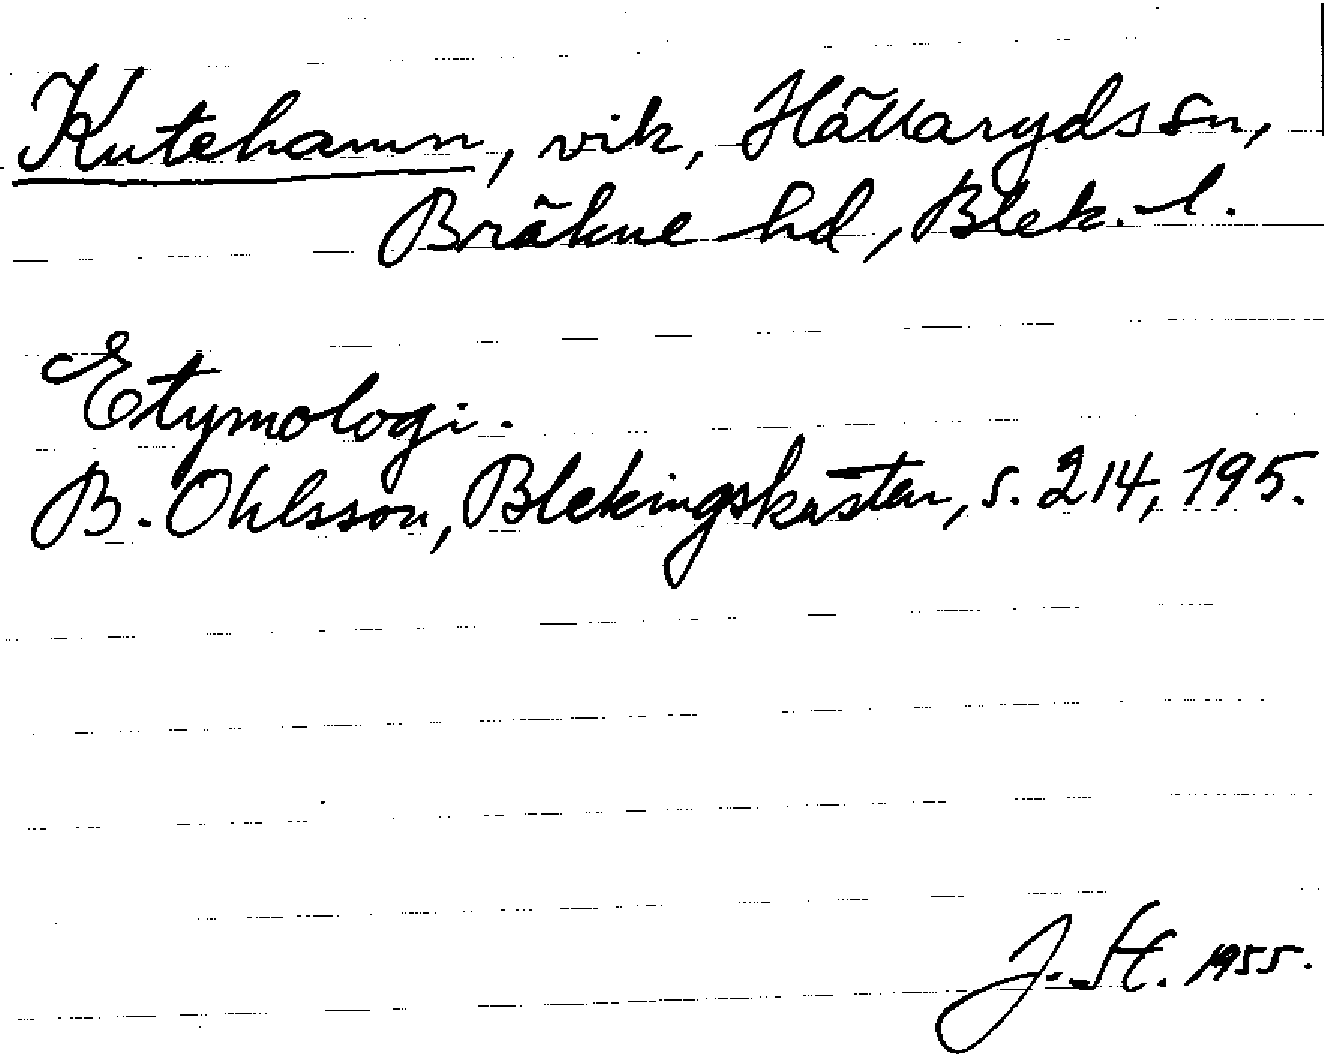 Kutehamn, vik, Hällaryds sn,
Bräkne hd, Blek. l.
Etymologi.
B. Ohlsson, Blekingskusten, s. 214, 195.
J. St. 1955.